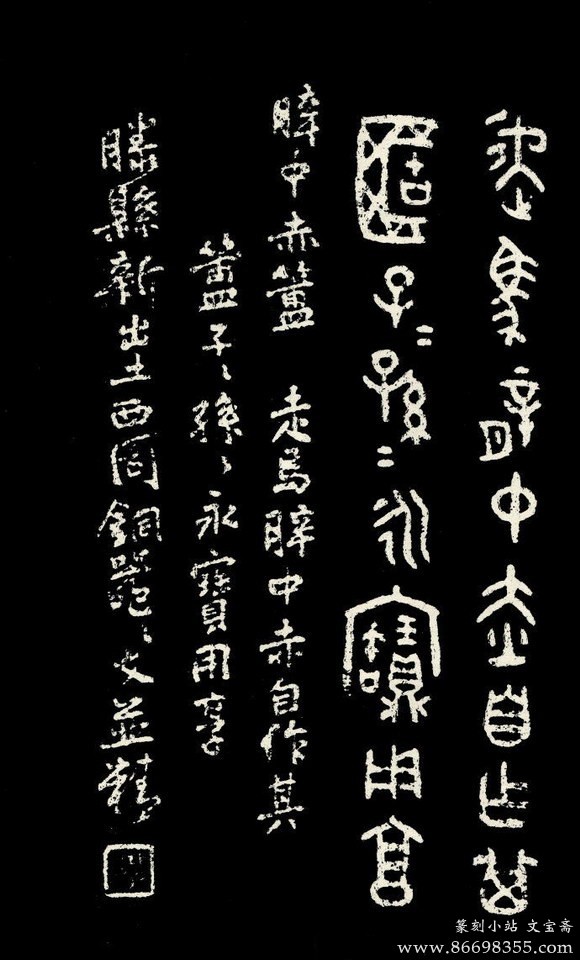 走馬薛中赤自乍其
𠤳子₌孫₌永寶用享
薛中赤簠 走馬薛中赤自作其
簠子〻孫〻永寶用享
滕縣新出土西周銅器〻文並精
篆刻小站 文宝斋
www.86698355.com